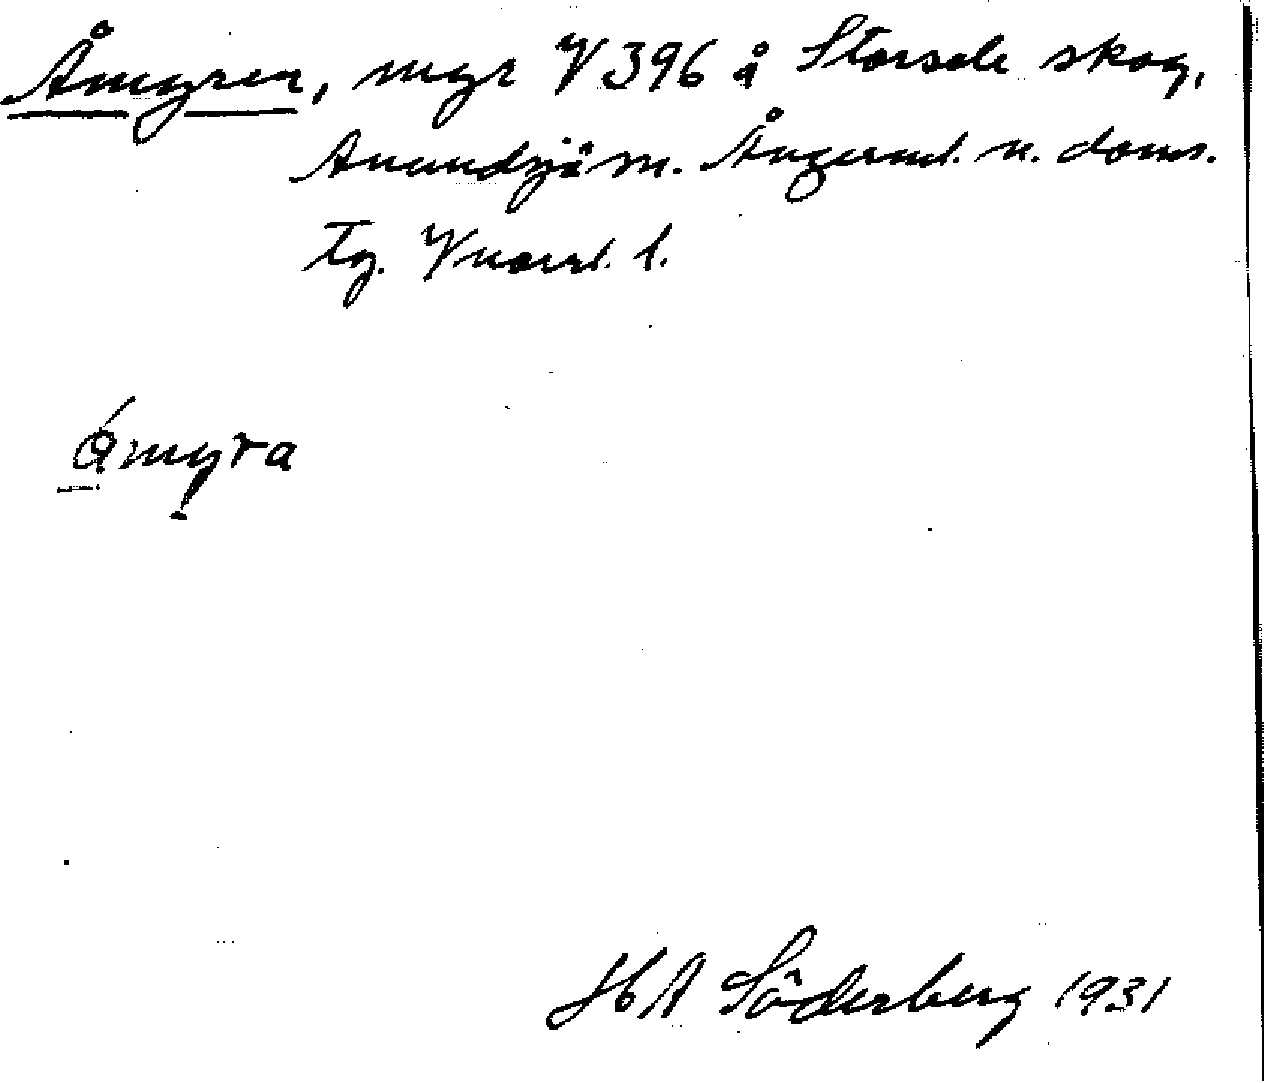 Åmyren, myr V 396 å Storsele skog,
Anundsjö sn. Ångerml. n. doms.
tg. Vnorrl. l.
åmyra
H A Söderberg 1931